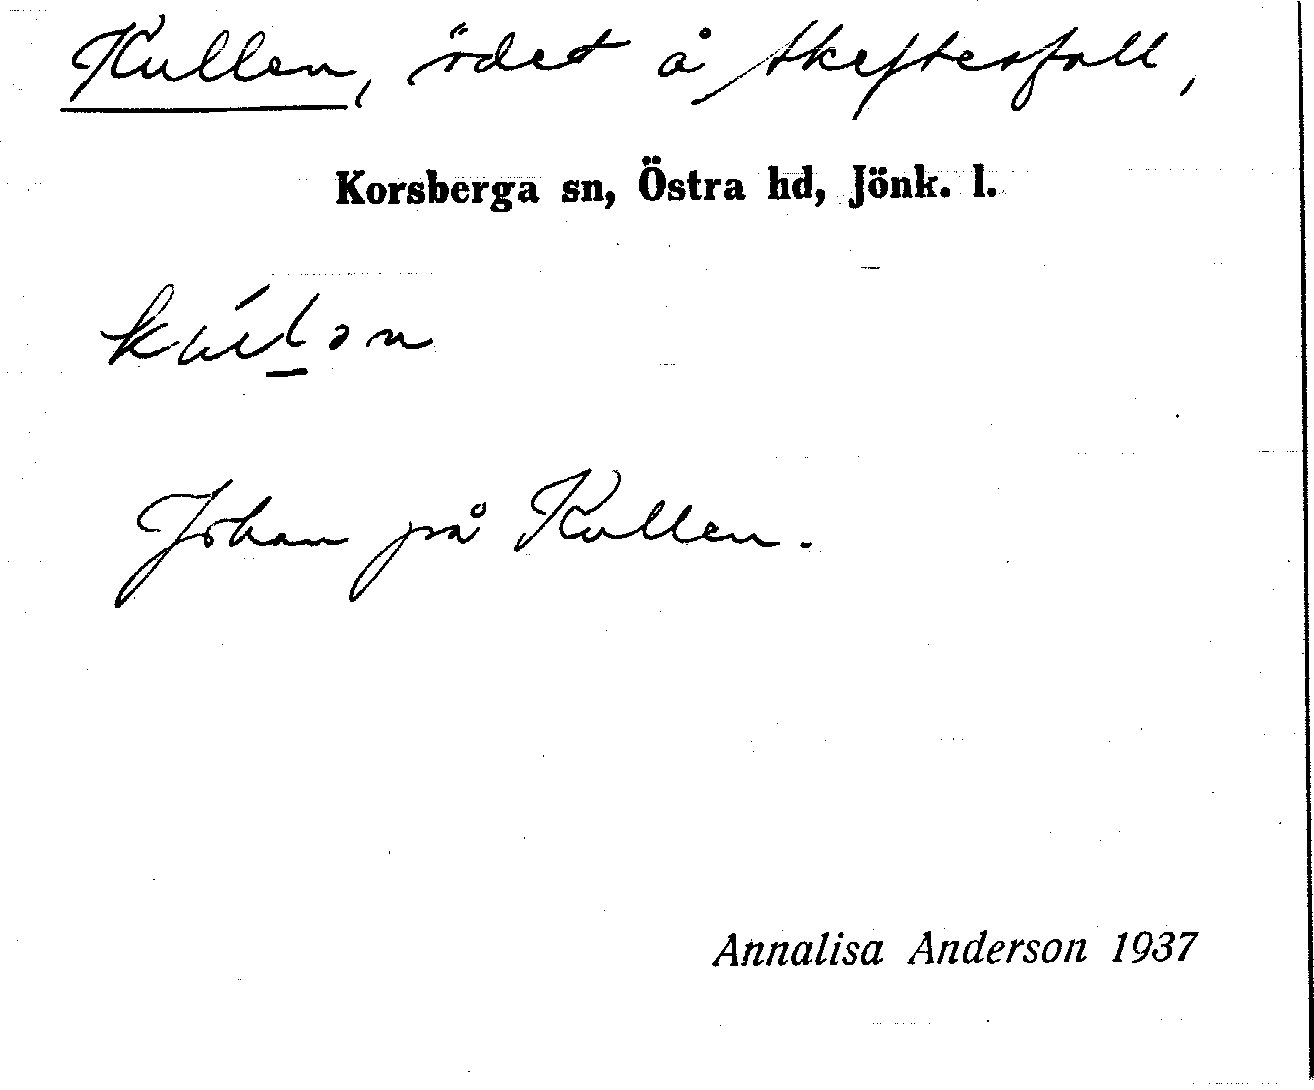 Kullen, ödet å Skeftesfall,
Korsberga sn, Östra hd, Jönk. l.
Johan på Kullen.
Annalisa Anderson 1937